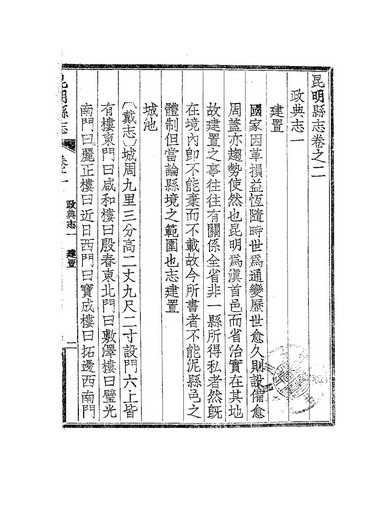 昆明縣志卷之二
政典志一
建置
國家因革損益恆隨時世爲通變歷世愈久則設備愈
周蓋亦趨勢使然也昆明爲滇首邑而省治實在其地
故建置之事往往有關係全省非一縣所得私者然既
在境內卽不能棄而不載故今所書者不能泥縣邑之
體制但當論縣境之範圍也志建置
城池
〔戴志〕城周九里三分高二丈九尺二寸設門六上皆
有樓東門曰咸和樓曰殷春東北門曰敷澤樓曰璧光
南門曰麗正樓曰近日西門曰寶成樓曰拓邊西南門
昆明縣志
卷二
政典志一
建置
一